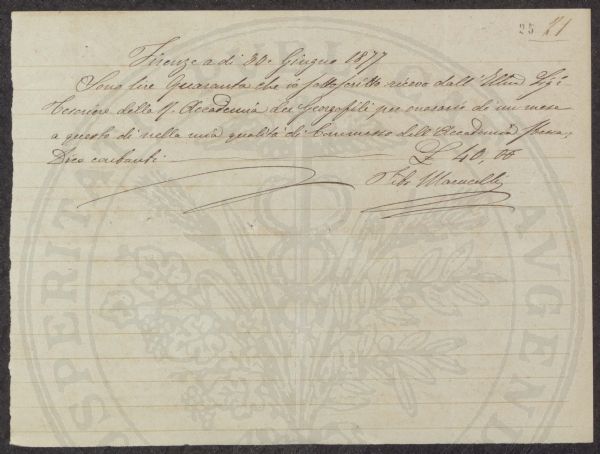 25 21
Firenze a dì 30 Giugno 1877
Sono lire Quaranta che io sottoscritto ricevo dall' Ill.mo Sig.r
Tesoriere della R. Accademia dei Georgofili per onorario di un mese
a questo dì nella mia qualità di Commesso dell' Accademia stessa,
Dico contanti £ 40,00
PROSPERITATI AUGENDAE